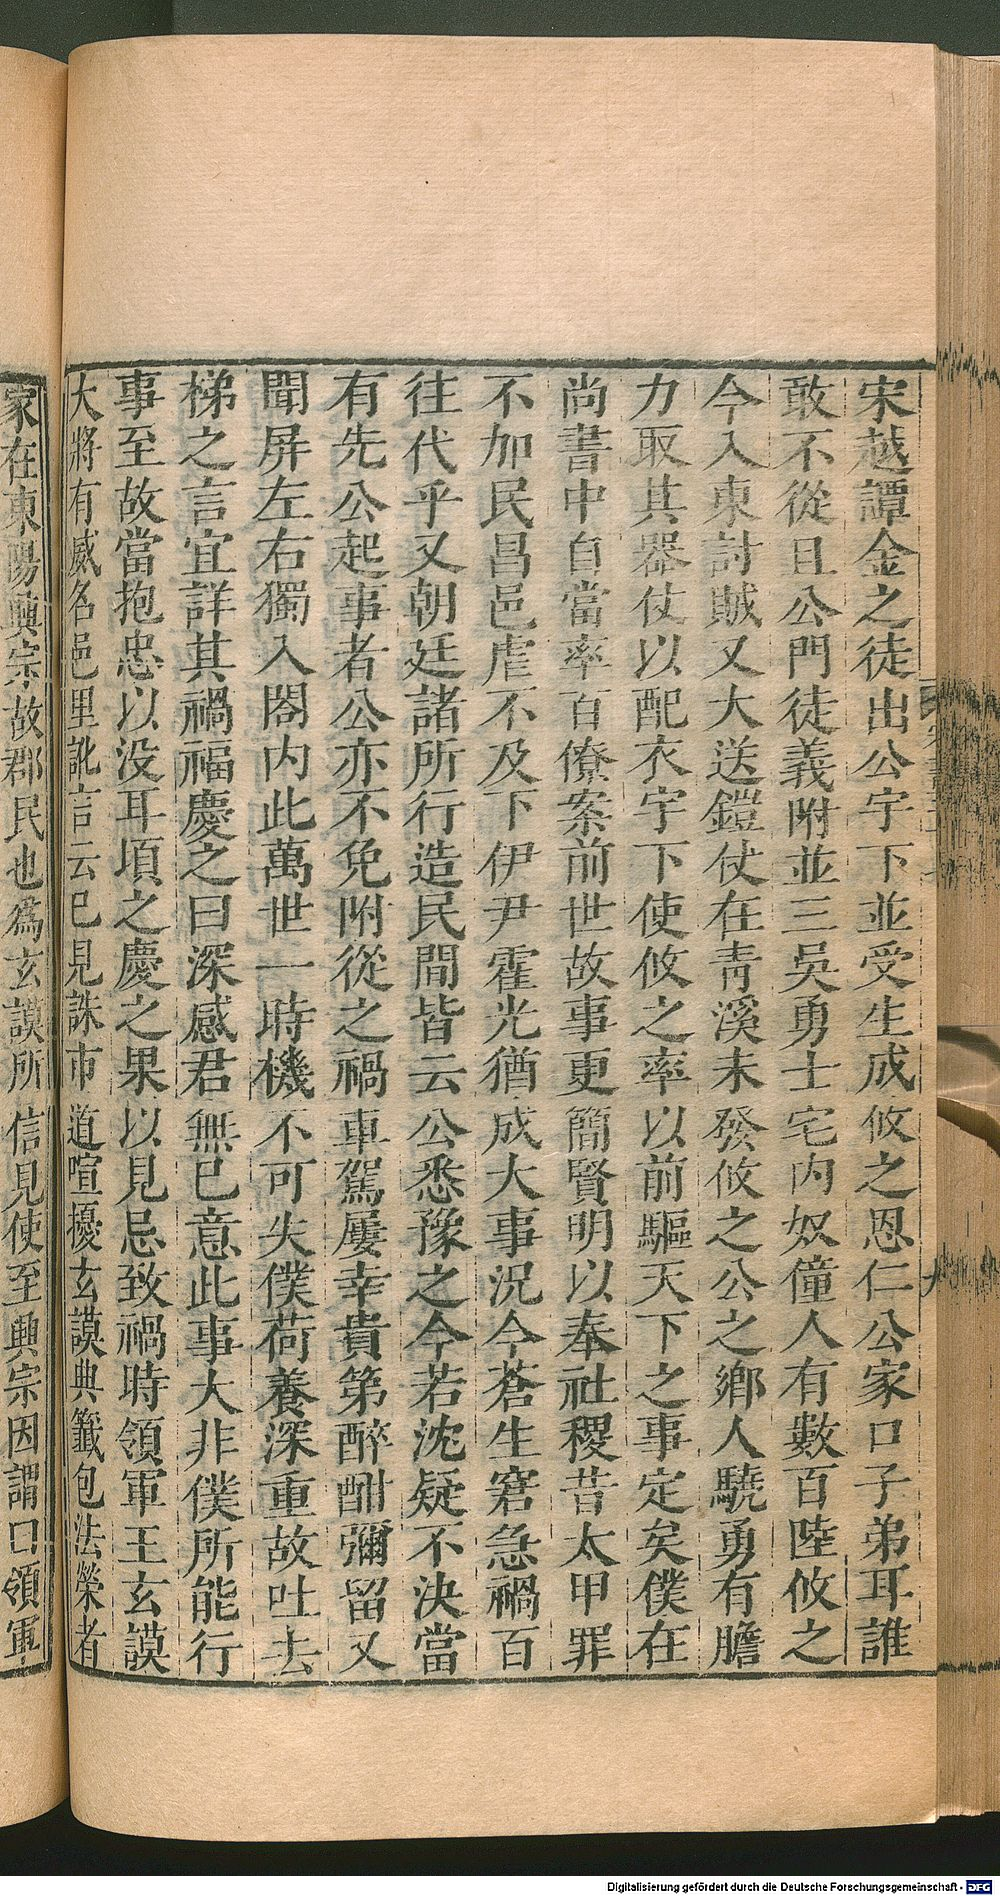 宋越譚金之徒出公宇下並受生成攸之恩仁公家口子弟耳誰
敢不從且公門徒義附並三吳勇士宅內奴僮人有數百陸攸之
今入東討賊又大送鎧仗在青溪未發攸之公之鄉人驍勇有膽
力取其器仗以配衣宇下使攸之率以前驅天下之事定矣僕在
尚書中自當率百僚案前世故事更簡賢明以奉社稷昔太甲罪
不加民昌邑虐不及下伊尹霍光猶成大事況今蒼生窘急禍百
往代乎又朝廷諸所行造民間皆云公悉豫之今若沈疑不決當
有先公起事者公亦不免附從之禍車駕屢幸貴第醉酣彌留又
聞屏左右獨入閤內此萬世一時機不可失僕荷養深重故吐去
梯之言宜詳其禍福慶之曰深感君無已意此事大非僕所能行
事至故當抱忠以没耳頃之慶之果以見忌致禍時領軍王玄謨
大將有威名邑里訛言云已見誅市道喧擾玄謨典籤包法榮者
家在東陽興宗故郡民也爲玄謨所信見使至興宗因謂曰領軍
Digitalisierung gefördert durch die Deutsche Forschungsgemeinschaft - DFG